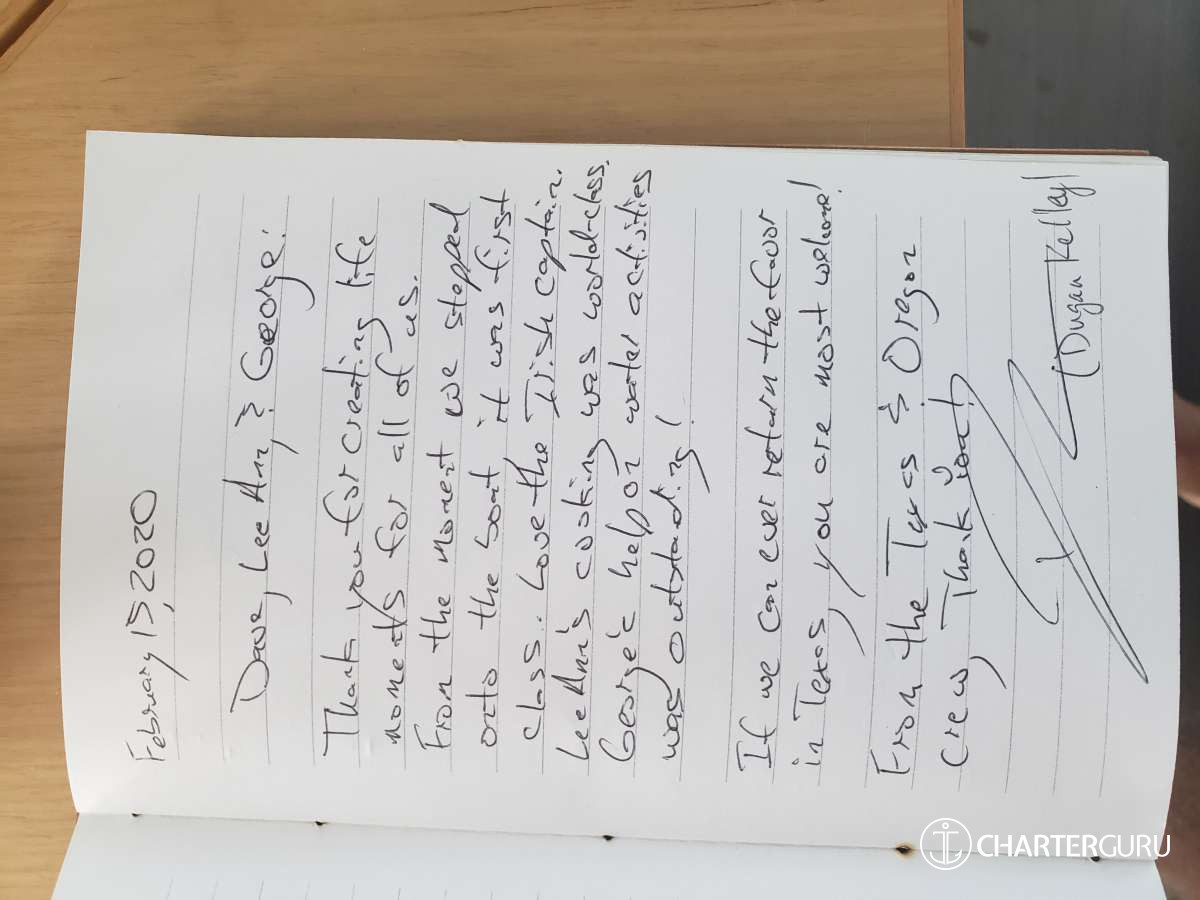 February 15, 2020
Dave, Lee Ann, & George:
Thank you for creating life
moments for all of us.
From the moment we stepped
onto the boat it was first
class. Love the Irish captain.
Lee Ann's cooking was world-class.
George's help on water activities
was outstanding!
If we can ever return the favor
in Texas, you are most welcome!
From the Texas & Oregon
crew, Thank you!
(Dugan Kelley)
CHARTERGURU